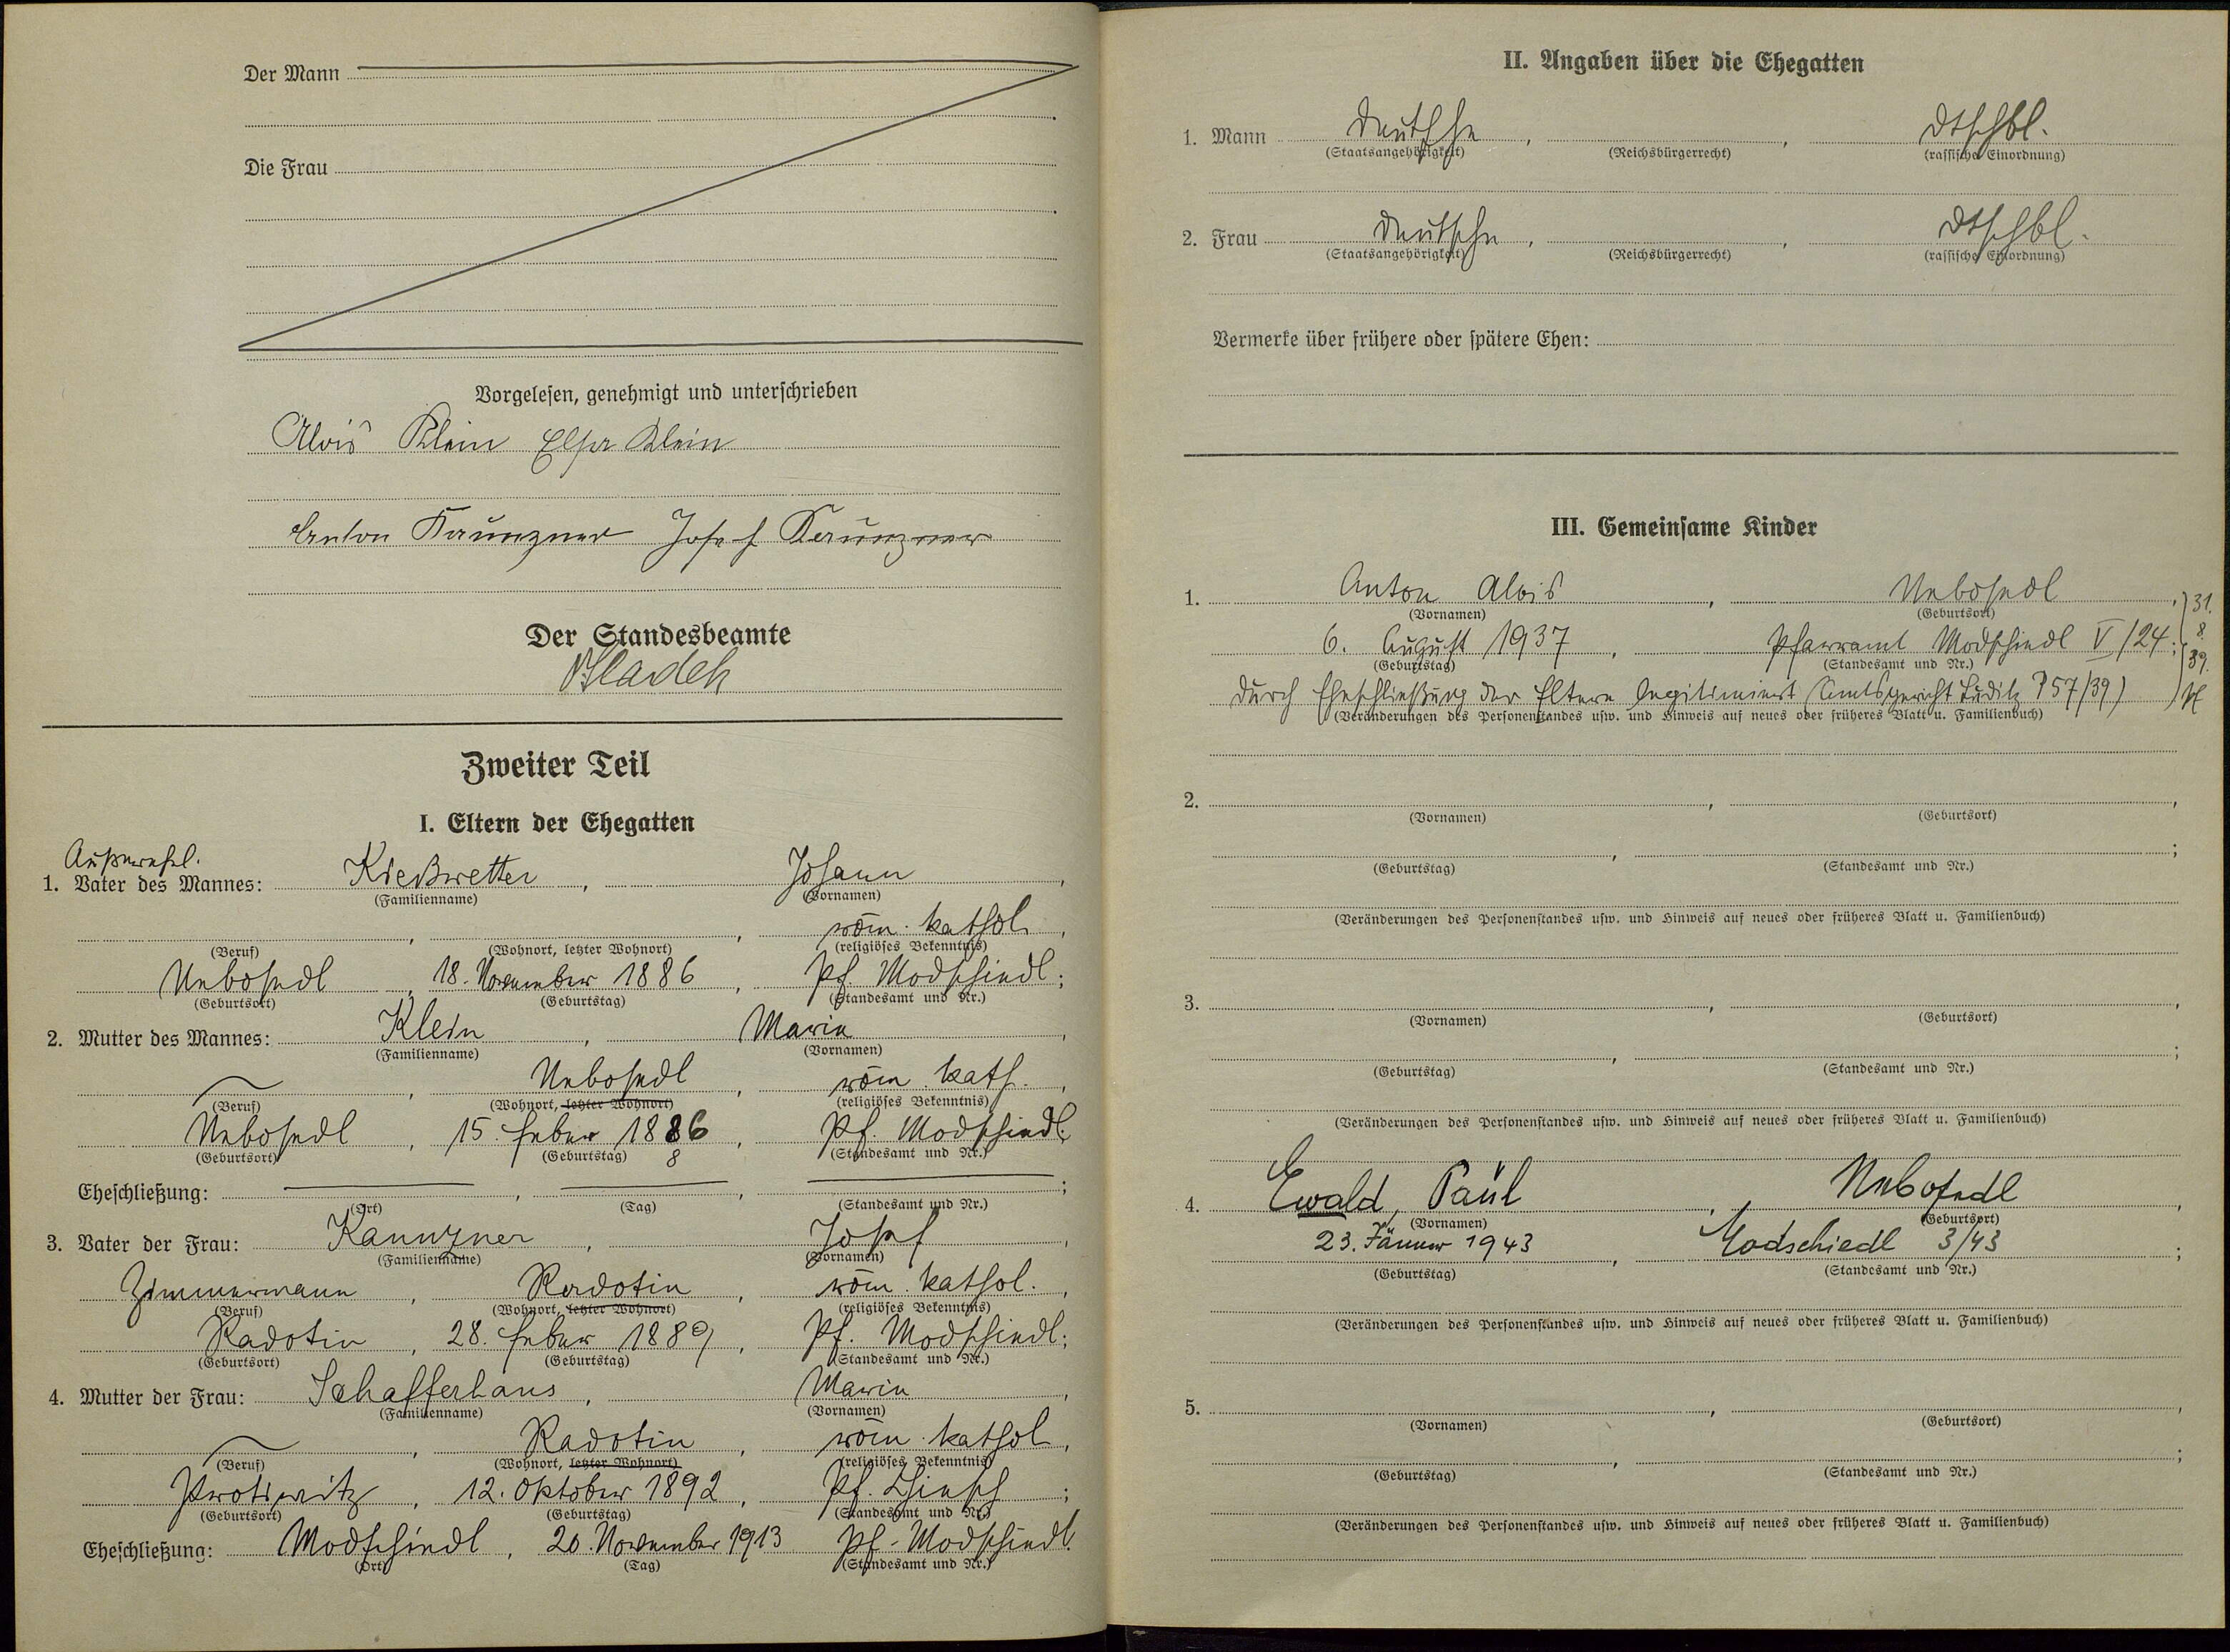 Der Mann
Die Frau
Vorgelesen, genehmigt und unterschrieben
Alois Klein Elsa Klein
Anton Kaunzner Josef Kaunzner
Der Standesbeamte
Zweiter Teil
I. Eltern der Ehegatten
Außerehel.
1. Vater des Mannes: Kießwetter, Johann,
(Familienname) (Vornamen)
, , röm. kathol.,
(Beruf) (Wohnort, letzter Wohnort) (religiöses Bekenntnis)
Nebosedl, 18. November 1886, Pf. Modschiedl;
(Geburtsort) (Geburtstag) (Standesamt und Nr.)
2. Mutter des Mannes: Klein, Marie,
(Familienname) (Vornamen)
, Nebosedl, röm. kath.,
(Beruf) (Wohnort, letzter Wohnort) (religiöses Bekenntnis)
Nebosedl, 15. Feber 1886, Pf. Modschiedl;
(Geburtsort) (Geburtstag) 8 (Standesamt und Nr.)
Eheschließung: , , ;
(Ort) (Tag) (Standesamt und Nr.)
3. Vater der Frau: Kaunzner, Josef,
(Familienname) (Vornamen)
Zimmermann, Radotin, röm. kathol.,
(Beruf) (Wohnort, letzter Wohnort) (religiöses Bekenntnis)
Radotin, 28. Feber 1889, Pf. Modschiedl;
(Geburtsort) (Geburtstag) (Standesamt und Nr.)
4. Mutter der Frau: Schafferhans, Marie,
(Familienname) (Vornamen)
, Radotin, röm. kathol,
(Beruf) (Wohnort, letzter Wohnort) (religiöses Bekenntnis)
Protiwitz, 12. Oktober 1892, Pf. Chiesch;
(Geburtsort) (Geburtstag) (Standesamt und Nr.)
Eheschließung: Modschiedl, 20. November 1913 Pf. Modschiedl.
(Ort) (Tag) (Standesamt und Nr.)
II. Angaben über die Ehegatten
1. Mann Deutsche, , dtschbl.
(Staatsangehörigkeit) (Reichsbürgerrecht) (rassische Einordnung)
2. Frau Deutsche, , dtschbl.
(Staatsangehörigkeit) (Reichsbürgerrecht) (rassische Einordnung)
Vermerke über frühere oder spätere Ehen:
III. Gemeinsame Kinder
1. Anton Alois, Nebosedl, 31.
(Vornamen) (Geburtsort)
6. August 1937, Pfarramt Modschiedl V/24; 8.
(Geburtstag) (Standesamt und Nr.) 39.
durch Eheschließung der Eltern legitimiert (Amtsgericht Luditz P 57/39)
(Veränderungen des Personenstandes usw. und Hinweis auf neues oder früheres Blatt u. Familienbuch)
2. , ,
(Vornamen) (Geburtsort)
, ;
(Geburtstag) (Standesamt und Nr.)
(Veränderungen des Personenstandes usw. und Hinweis auf neues oder früheres Blatt u. Familienbuch)
3. , ,
(Vornamen) (Geburtsort)
, ;
(Geburtstag) (Standesamt und Nr.)
(Veränderungen des Personenstandes usw. und Hinweis auf neues oder früheres Blatt u. Familienbuch)
4. Ewald, Paul, Nebosedl,
(Vornamen) (Geburtsort)
23. Jänner 1943, Modschiedl 3/43;
(Geburtstag) (Standesamt und Nr.)
(Veränderungen des Personenstandes usw. und Hinweis auf neues oder früheres Blatt u. Familienbuch)
5. , ,
(Vornamen) (Geburtsort)
, ;
(Geburtstag) (Standesamt und Nr.)
(Veränderungen des Personenstandes usw. und Hinweis auf neues oder früheres Blatt u. Familienbuch)